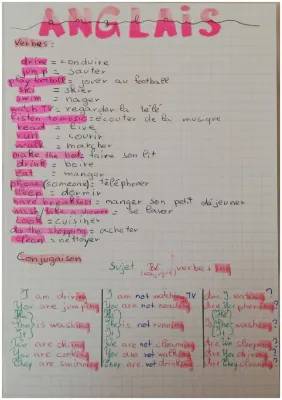 ANGLAIS
Verbes:
drive = conduire
jump = sauter
play football = jouer au football
ski = skier
swim = nager
watch TV = regarder la télé
listen to music = écouter de la musique
read = lire
run = courir
walk = marcher
make the bed = faire son lit
drink = boire
eat = manger
phone (someone) = téléphoner
sleep = dormir
have breakfast = manger son petit déjeuner
wash/take a shower = se laver
cook = cuisiner
do the shopping = acheter
clean = nettoyer
Conjugaison
Sujet Be verbe + ing
I am driving I am not watching TV
You are jumping You are not
is washing is not running
We are skiing We are not cleaning
You are cooking You are not walking
They are swimming They are not drinking